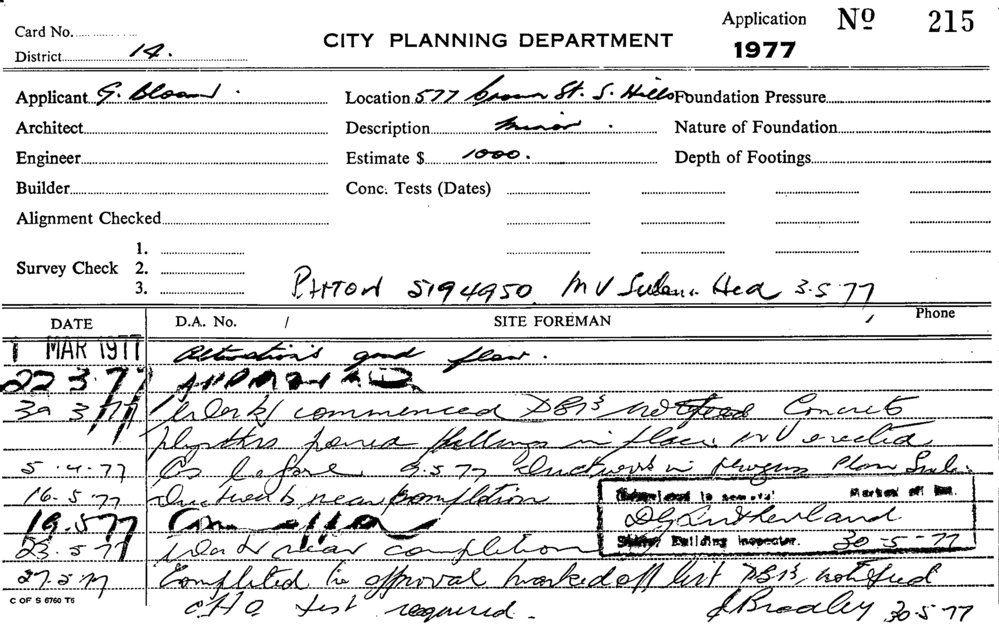 Card No.
Application No 215
District 14.
CITY PLANNING DEPARTMENT
1977
Applicant G.
Location 577 Crown St. S. Hills
Foundation Pressure
Architect
Description Minor.
Nature of Foundation
Engineer
Estimate $ 1000.
Depth of Footings
Builder
Conc. Tests (Dates)
Alignment Checked
Survey Check 1.
2.
3.
5194950. MV 3.5.77
DATE D.A. No. / SITE FOREMAN Phone
1 MAR 1977 Alterations good floor.
22 3.77
30 3 77 Work commenced notified Concrete
plynths poured in place MV erected
5.4.77 As before 9.5.77 ductwork in progress Plan
16.5.77 Ductwork near completion
19.577
23.5.77 Work near completion
27.5.77 Completed to approval marked off list notified
test required. J Bradley 30.5.77
Marked off list.
DG Sutherland
Building Inspector. 30-5-77
C OF S 6760 T6